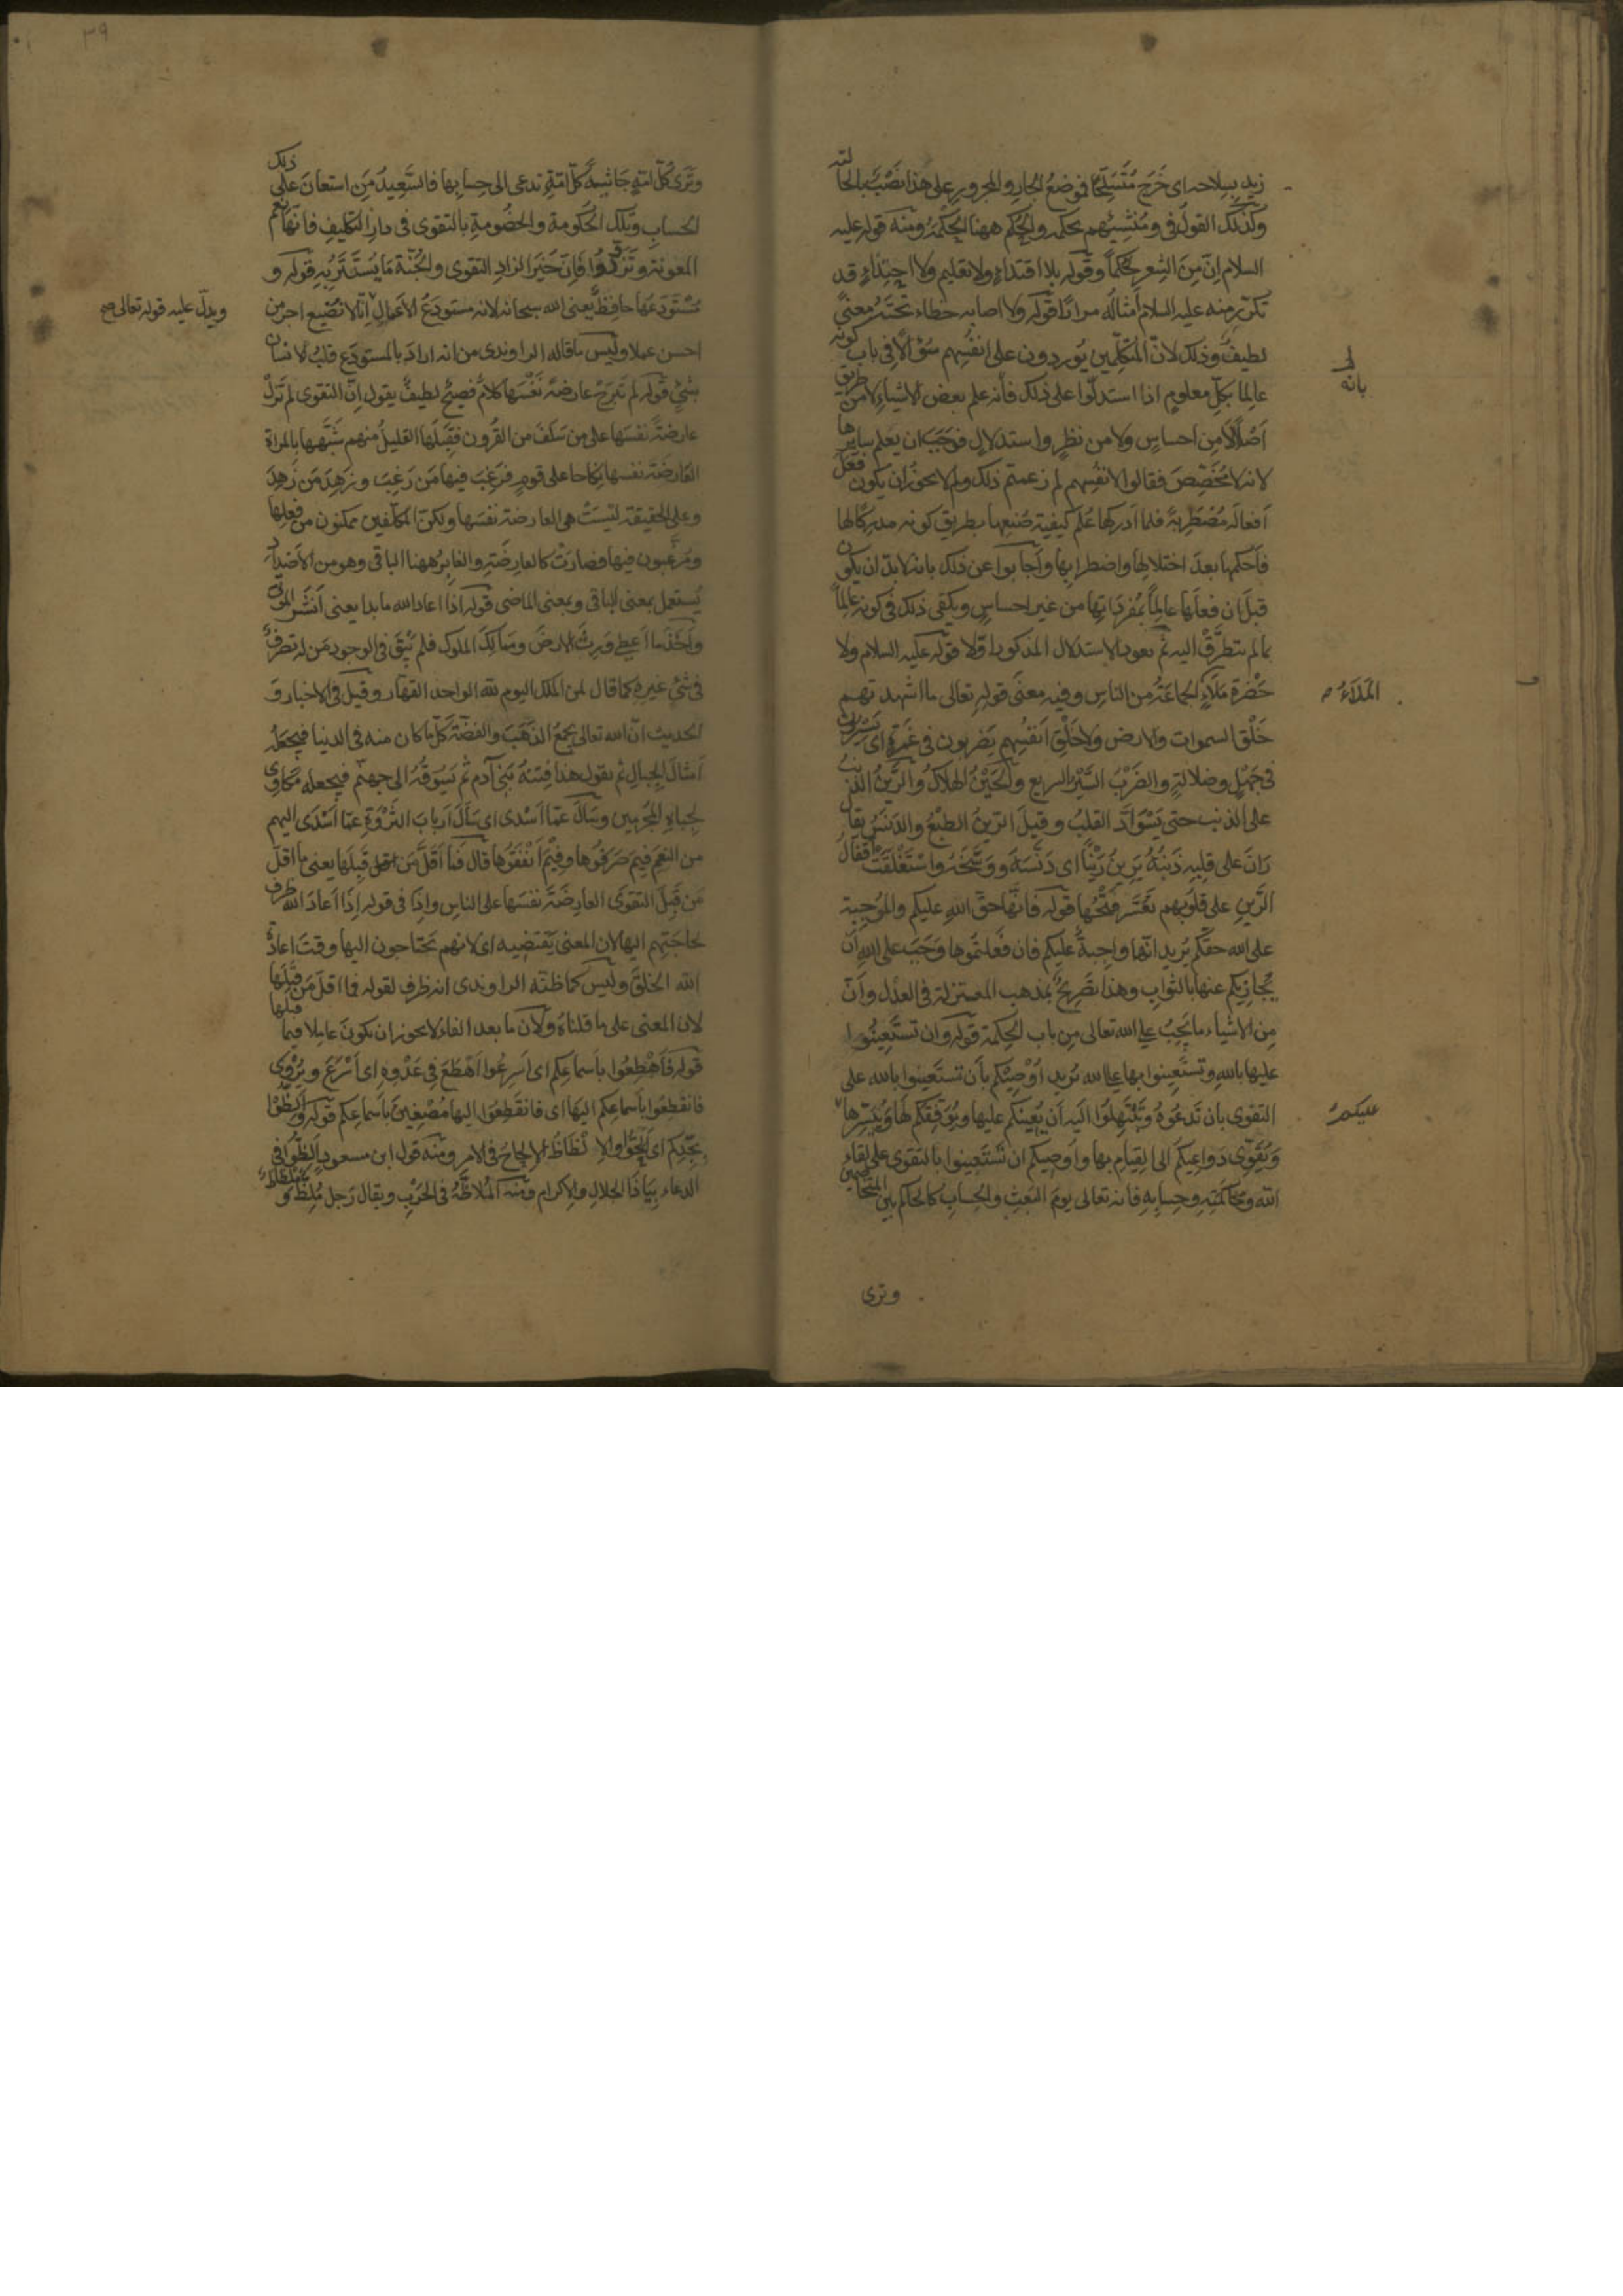 زيد بسلاحه اى خَرَج مُتَسَلِّحًا فموضعُ الجارِ والمجرورِ على هذا نَصْبٌ بالحا لته
وكذلك القولُ فى ومُنْشِئهم بحكمه والحُكم ههنا الحِكْمةُ ومنه قوله عليه
السلام اِنّ مِنَ الشِعر لَحُكمًا وقوله بلا اقتداءٍ ولا تعليم ولا احتِذاءٍ قد
تكرّر منه عليه السلام اَمثالُه مرارًا قوله ولا اصابه خطاء تحتَه معنًى
لطيفٌ وذلك لانّ المتكلّمين يُوردون على انفُسِهم سُؤالًا فى باب كونه
عالِما بكلّ معلومٍ اذا استدلّوا على ذلك فانّه علم بعض الاشياءِ لا من طريق
اَصْلًا لا مِن احساسٍ ولا من نظرٍ واستدلالٍ فوجَبَ ان يعلم سايرها
لانه لا مُخَصِّصَ فقالوا لانفُسِهم لم زعمتم ذلك ولم لا يجوز ان يكون فعَل
اَفعالَه مُضطَرِبةً فلما اَدركها عَلِمَ كيفيّة صُنعِها بطريق كونه مدركًا لها
فاَحكمها بعدَ اختلالِها واضطرابِها واَجابوا عن ذلك بانه لا بدّ ان يكون
قبلَ ان فعلَها عالِمًا بمُفرَداتِها من غير احساسٍ ويكفى ذلك فى كونه عالِمًا
بما لم يتطرَّقْ اليه ثم يعود الاستدلال المذكور اوّلًا قوله عليه السلام ولا
حَضْرة مَلَاءٍ الجماعةُ من الناس وفيه معنَى قوله تعالى ما اشهدتهم
خَلْق السموات والارض ولا خَلْقَ اَنفُسِهم يَضربون فى غَمْرةٍ اى يَسِيرُون
فى جَهْلٍ وضلالةٍ والضَرْبُ السَّيْرُ السريع والحَيْنُ الهلاكُ والرَّينُ الذنبُ
على الذنب حتى يَسْوَادَّ القلبُ وقيلَ الرّينُ الطَبْعُ والدَنَسُ يقال
رَانَ على قلبِه ذَنبُهُ يَرِينُ رَيْنًا اى دَنّسَهُ ووَسّخَهُ واسْتَغْلَقَتْ اَقفالُ
الرَّينِ على قلوبِهم تَعَسَّر فَتْحُها قوله فانّها حقّ اللهِ عليكم والمُوجِبة
على الله حقَّكم يُريد انّها واجِبةٌ عليكم فان فَعَلتمُوها وَجَبَ على اللهِ اَن
يُجازيكم عنها بالثوابِ وهذا تَصْريحٌ بمذهب المعتزلة فى العدل وانّ
مِن الاشياء ما يَجِبُ على الله تعالى مِن باب الحِكمة قوله وان تستَعِينُوا
عليها باللهِ وتستَعِينوا بها على الله يُريد اُوْصِيْكم بأن تستَعينوا بالله على
التقوى بان تَدعُوهُ وتَبْتَهِلُوا اليهِ اَن يُعينَكم عليها ويُوَفِّقَكم لَها ويُيَسِّرها
ويُقوِّى دَواعِيَكم الى القِيام بها واُوصيكم ان تَستعِينوا بالتقوى على لِقاءِ
الله ومُحاكمتِه وحِسابِهِ فانه تعالى يومَ البَعْثِ والحِسابِ كالحاكم بين المتخاصمين
بانّه
المَلَاءُ
عليكم
وترى
٣٩
وترى كُلّ امّةٍ جاثيةً كلّ امّةٍ تدعى الى حِسابِها فالسَّعِيدُ مَنِ استعانَ على ذلك
الحِسابِ وتلك الحُكومة والخُصُومةِ بالتقوى فى دارِ التكليفِ فانّها نعم
المعونة وتَزَوّدُوا فَاِنّ خَيْرَ الزادِ التقوى والجُنّة مَا يُستَتَرُ بهِ قوله و
مُسْتَودَعُها حافِظٌ يَعنى الله سبحانه لانه مستودَعُ الاَعمال اِنّا لا نُضيع اجر من
احسن عملا وليس ما قاله الراوندى من انه ارادَ بالمستودَع قلبُ الانسان
بشئٍ قوله لم تَبرَحْ عارضةً نَفْسَها كلامٌ فصيحٌ لطيفٌ يقول اِنّ التقوى لم تَزلْ
عارضةً نفسَها على من سَلَفَ من القُرونِ فقَبِلَها القليلُ منهم شَبَّهها بالمراة
العارضة نفسها نِكاحا على قومٍ فرَغِبَ فيها مَن رَغِبَ وزهِدَ مَن زَهِدَ
وعلى الحقيقة ليسَتْ هى العارضةَ نفسَها ولكنّ المكلّفين ممكَنون من فعلها
ومُرغَّبون فيها فصارَتْ كالعارِضَةِ والغابِرُ ههنا الباقى وهو من الاَضدادِ
يُستعمل بمعنى الباقى وبمعنى الماضى قوله اذا اعاد الله ما بدا يعنى اَنشَرَ الموتَى
واَخَذَ ما اَعطى وَرِثَ الارضَ ومَمالِكَ الملوكِ فلم يَبْقَ فى الوجودِ مَن له تصرفٌ
فى شئٍ غيره كما قال لمن الملك اليوم لله الواحد القهار وقيلَ فى الاخبار و
الحديث انّ الله تعالى يجمَعُ الذَهَبَ والفضّةَ كلّ ما كان منه فى الدنيا فيَجعَلُه
اَمثالَ الجِبالِ ثم يقول هذا فِتنةُ بَنى آدم ثم يَسُوقُهُ الى جهنّم فيجعله مَكاوِىَ
لِجِباهِ المجرمِين وسَأل عمّا اَسْدى اى سَأَلَ اَربابَ الثَرْوَةِ عمّا اَسْدَى اليهم
من النِعَم فيمَ صَرَفُوها وفِيْمَ اَنْفَقُوها قال فَما اَقَلَّ مَن قَبِلَها يعنى ما اقلّ
مَن قَبِلَ التقوَى العارضَةَ نَفسَها على الناس واِذا فى قوله اِذَا اَعادَ الله ظرف
لحاجتِهم اليها لان المعنى يَقتضِيه اى لانهم يَحتاجون اليها وقتَ اعادةِ
الله الخلقَ وليس كما ظنّه الراوندى انه ظرف لقوله فما اقلّ مَن قَبِلَها
لان المعنى على ما قلناهُ ولانّ ما بعد الفاء لا يجوز ان يكونَ عامِلا فيما قبلها
قوله فَاَهْطِعُوا بأسماعِكم اى اَسرِعُوا اَهْطَعَ فِى عَدْوِهِ اى اَسْرَعَ ويُرْوَى
فانقَطِعُوا بأسماعِكم اليَها اى فانقَطِعُوا اليها مُصْغِينَ بأسماعِكم قوله واَلِظّوا
بجِدّكم اى اَلِحُّوا والاِلْظاظُ الاِلحاحُ فى الامر ومنه قول ابن مسعود اَلِظّوا فى
الدعاء بيَاذا الجلالِ والاِكرام ومنه المُلاظّةُ فى الحَرْبِ ويقال رَجل مُلِظٌّ و مِلظاظٌ
ويدلّ عليه قوله تعالى صح